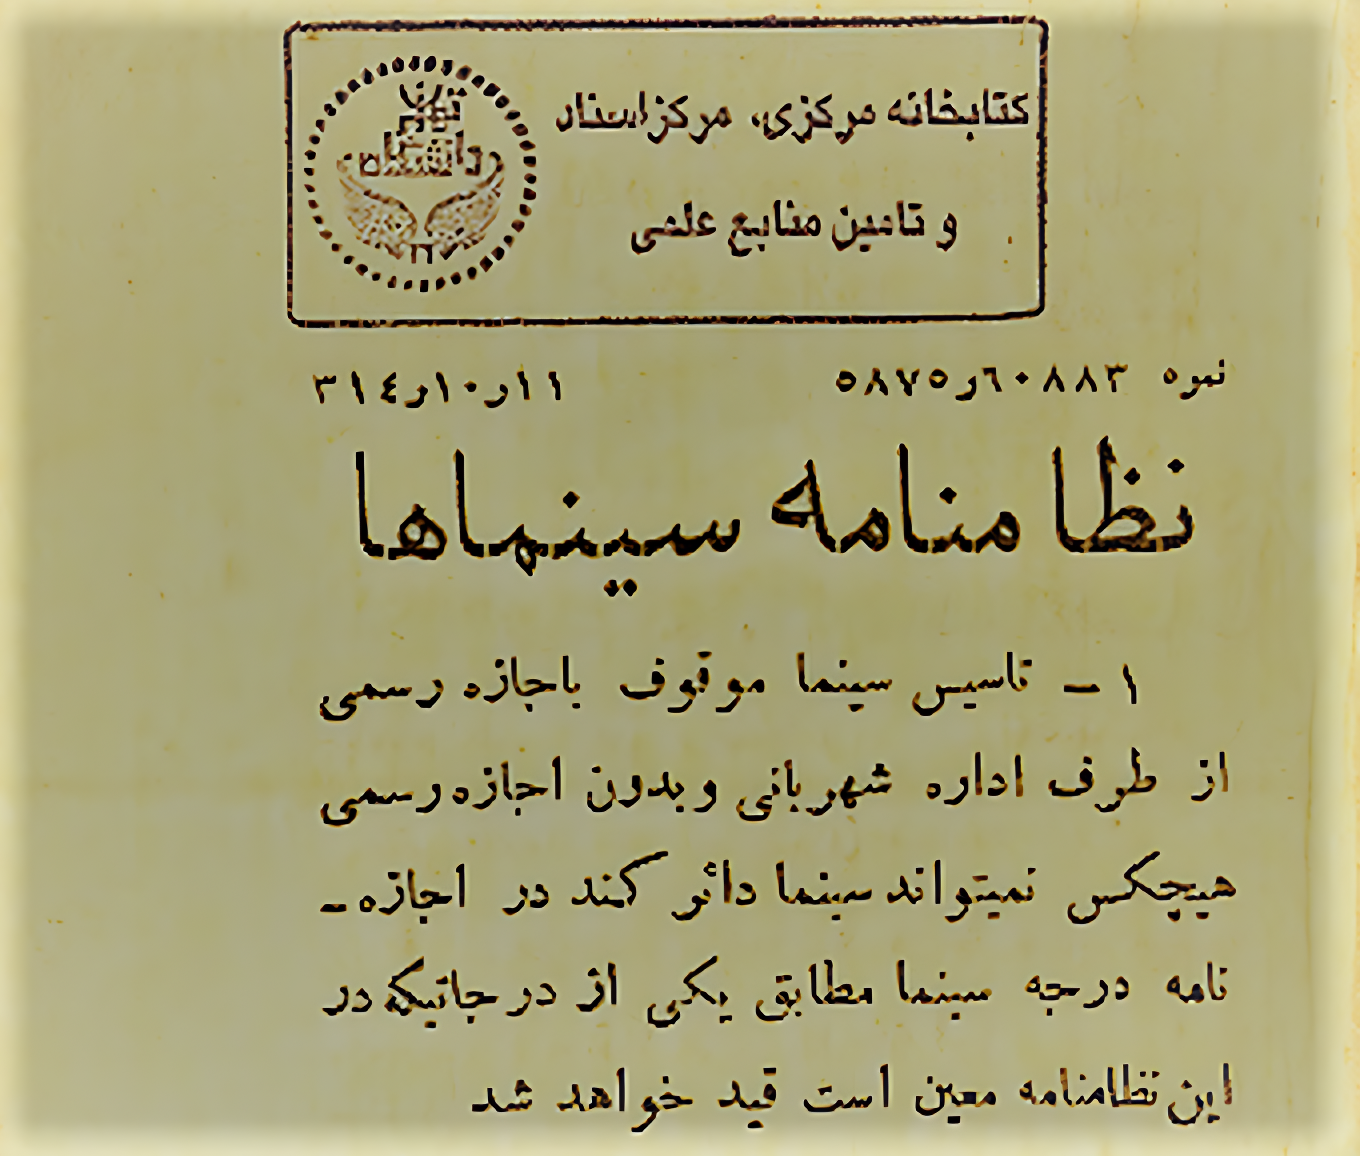 کتابخانه مرکزی، مرکز اسناد
و تامین منابع علمی
نمره ۶۰۸۸۳ر۵۸۷۵ ۱۱ر۱۰ر۳۱۴
نظامنامه سینماها
۱ – تاسیس سینما موقوف باجازه رسمی
از طرف اداره شهربانی و بدون اجازه رسمی
هیچکس نمیتواند سینما دائر کند در اجازه –
نامه درجه سینما مطابق یکی از درجاتیکه در
این نظامنامه معین است قید خواهد شد